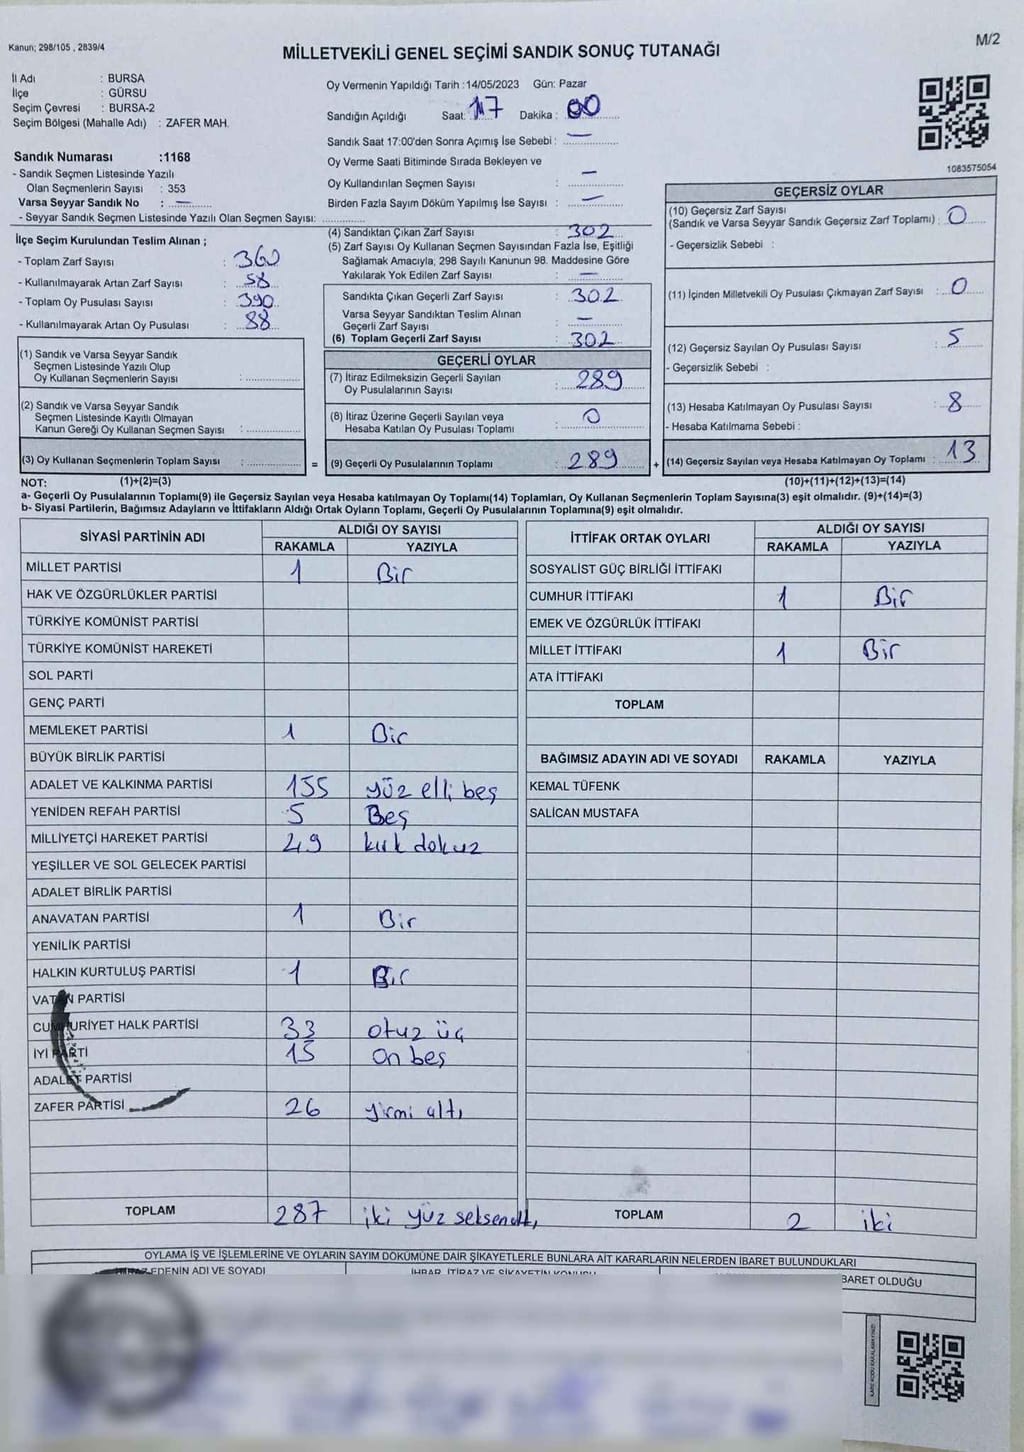 Kanun; 298/105 , 2839/4
MİLLETVEKİLİ GENEL SEÇİMİ SANDIK SONUÇ TUTANAĞI
M/2
İl Adı : BURSA
İlçe : GÜRSU
Seçim Çevresi : BURSA-2
Seçim Bölgesi (Mahalle Adı) : ZAFER MAH.
Sandık Numarası :1168
- Sandık Seçmen Listesinde Yazılı
Olan Seçmenlerin Sayısı : 353
Varsa Seyyar Sandık No : —
- Seyyar Sandık Seçmen Listesinde Yazılı Olan Seçmen Sayısı:
İlçe Seçim Kurulundan Teslim Alınan ;
- Toplam Zarf Sayısı : 360
- Kullanılmayarak Artan Zarf Sayısı : 58
- Toplam Oy Pusulası Sayısı : 390
- Kullanılmayarak Artan Oy Pusulası : 88
(1) Sandık ve Varsa Seyyar Sandık
Seçmen Listesinde Yazılı Olup
Oy Kullanan Seçmenlerin Sayısı :
(2) Sandık ve Varsa Seyyar Sandık
Seçmen Listesinde Kayıtlı Olmayan
Kanun Gereği Oy Kullanan Seçmen Sayısı :
(3) Oy Kullanan Seçmenlerin Toplam Sayısı :
Oy Vermenin Yapıldığı Tarih :14/05/2023 Gün: Pazar
Sandığın Açıldığı Saat: 17 Dakika : 00
Sandık Saat 17:00'den Sonra Açımış İse Sebebi : —
Oy Verme Saati Bitiminde Sırada Bekleyen ve
Oy Kullandırılan Seçmen Sayısı : —
Birden Fazla Sayım Döküm Yapılmış İse Sayısı : —
(4) Sandıktan Çıkan Zarf Sayısı : 302
(5) Zarf Sayısı Oy Kullanan Seçmen Sayısından Fazla İse, Eşitliği
Sağlamak Amacıyla, 298 Sayılı Kanunun 98. Maddesine Göre
Yakılarak Yok Edilen Zarf Sayısı : —
Sandıkta Çıkan Geçerli Zarf Sayısı : 302
Varsa Seyyar Sandıktan Teslim Alınan
Geçerli Zarf Sayısı : —
(6) Toplam Geçerli Zarf Sayısı : 302
GEÇERLİ OYLAR
(7) İtiraz Edilmeksizin Geçerli Sayılan
Oy Pusulalarının Sayısı : 289
(8) İtiraz Üzerine Geçerli Sayılan veya
Hesaba Katılan Oy Pusulası Toplamı : 0
= (9) Geçerli Oy Pusulalarının Toplamı : 289
1083575054
GEÇERSİZ OYLAR
(10) Geçersiz Zarf Sayısı
(Sandık ve Varsa Seyyar Sandık Geçersiz Zarf Toplamı) : 0
- Geçersizlik Sebebi :
(11) İçinden Milletvekili Oy Pusulası Çıkmayan Zarf Sayısı : 0
(12) Geçersiz Sayılan Oy Pusulası Sayısı : 5
- Geçersizlik Sebebi :
(13) Hesaba Katılmayan Oy Pusulası Sayısı : 8
- Hesaba Katılmama Sebebi :
+ (14) Geçersiz Sayılan veya Hesaba Katılmayan Oy Toplamı : 13
NOT: (1)+(2)=(3) (10)+(11)+(12)+(13)=(14)
a- Geçerli Oy Pusulalarının Toplamı(9) ile Geçersiz Sayılan veya Hesaba katılmayan Oy Toplamı(14) Toplamları, Oy Kullanan Seçmenlerin Toplam Sayısına(3) eşit olmalıdır. (9)+(14)=(3)
b- Siyasi Partilerin, Bağımsız Adayların ve İttifakların Aldığı Ortak Oyların Toplamı, Geçerli Oy Pusulalarının Toplamına(9) eşit olmalıdır.
SİYASİ PARTİNİN ADI ALDIĞI OY SAYISI
RAKAMLA YAZIYLA
MİLLET PARTİSİ 1 Bir
HAK VE ÖZGÜRLÜKLER PARTİSİ
TÜRKİYE KOMÜNİST PARTİSİ
TÜRKİYE KOMÜNİST HAREKETİ
SOL PARTİ
GENÇ PARTİ
MEMLEKET PARTİSİ 1 Bir
BÜYÜK BİRLİK PARTİSİ
ADALET VE KALKINMA PARTİSİ 155 yüz elli beş
YENİDEN REFAH PARTİSİ 5 Beş
MİLLİYETÇİ HAREKET PARTİSİ 49 kırk dokuz
YEŞİLLER VE SOL GELECEK PARTİSİ
ADALET BİRLİK PARTİSİ
ANAVATAN PARTİSİ 1 Bir
YENİLİK PARTİSİ
HALKIN KURTULUŞ PARTİSİ 1 Bir
VATAN PARTİSİ
CUMHURİYET HALK PARTİSİ 33 otuz üç
İYİ PARTİ 15 on beş
ADALET PARTİSİ
ZAFER PARTİSİ 26 yirmi altı
TOPLAM 287 iki yüz
İTTİFAK ORTAK OYLARI ALDIĞI OY SAYISI
RAKAMLA YAZIYLA
SOSYALİST GÜÇ BİRLİĞİ İTTİFAKI
CUMHUR İTTİFAKI 1 Bir
EMEK VE ÖZGÜRLÜK İTTİFAKI
MİLLET İTTİFAKI 1 Bir
ATA İTTİFAKI
TOPLAM
BAĞIMSIZ ADAYIN ADI VE SOYADI RAKAMLA YAZIYLA
KEMAL TÜFENK
SALİCAN MUSTAFA
TOPLAM 2 iki
OYLAMA İŞ VE İŞLEMLERİNE VE OYLARIN SAYIM DÖKÜMÜNE DAİR ŞİKAYETLERLE BUNLARA AİT KARARLARIN NELERDEN İBARET BULUNDUKLARI
EDENİN ADI VE SOYADI
İHBAR, İTİRAZ VE ŞİKAYETİN KONUSU
BARET OLDUĞU